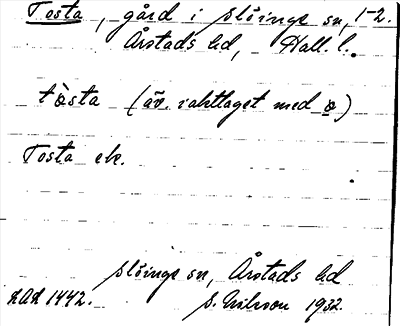 Tosta, gård i Slöinge sn, 1-2.
Årstads hd, Hall. l.
tòsta (äv. iakttaget med o)
Tosta ek.
Slöinge sn, Årstads hd
1442. S. Nilsson 1932.